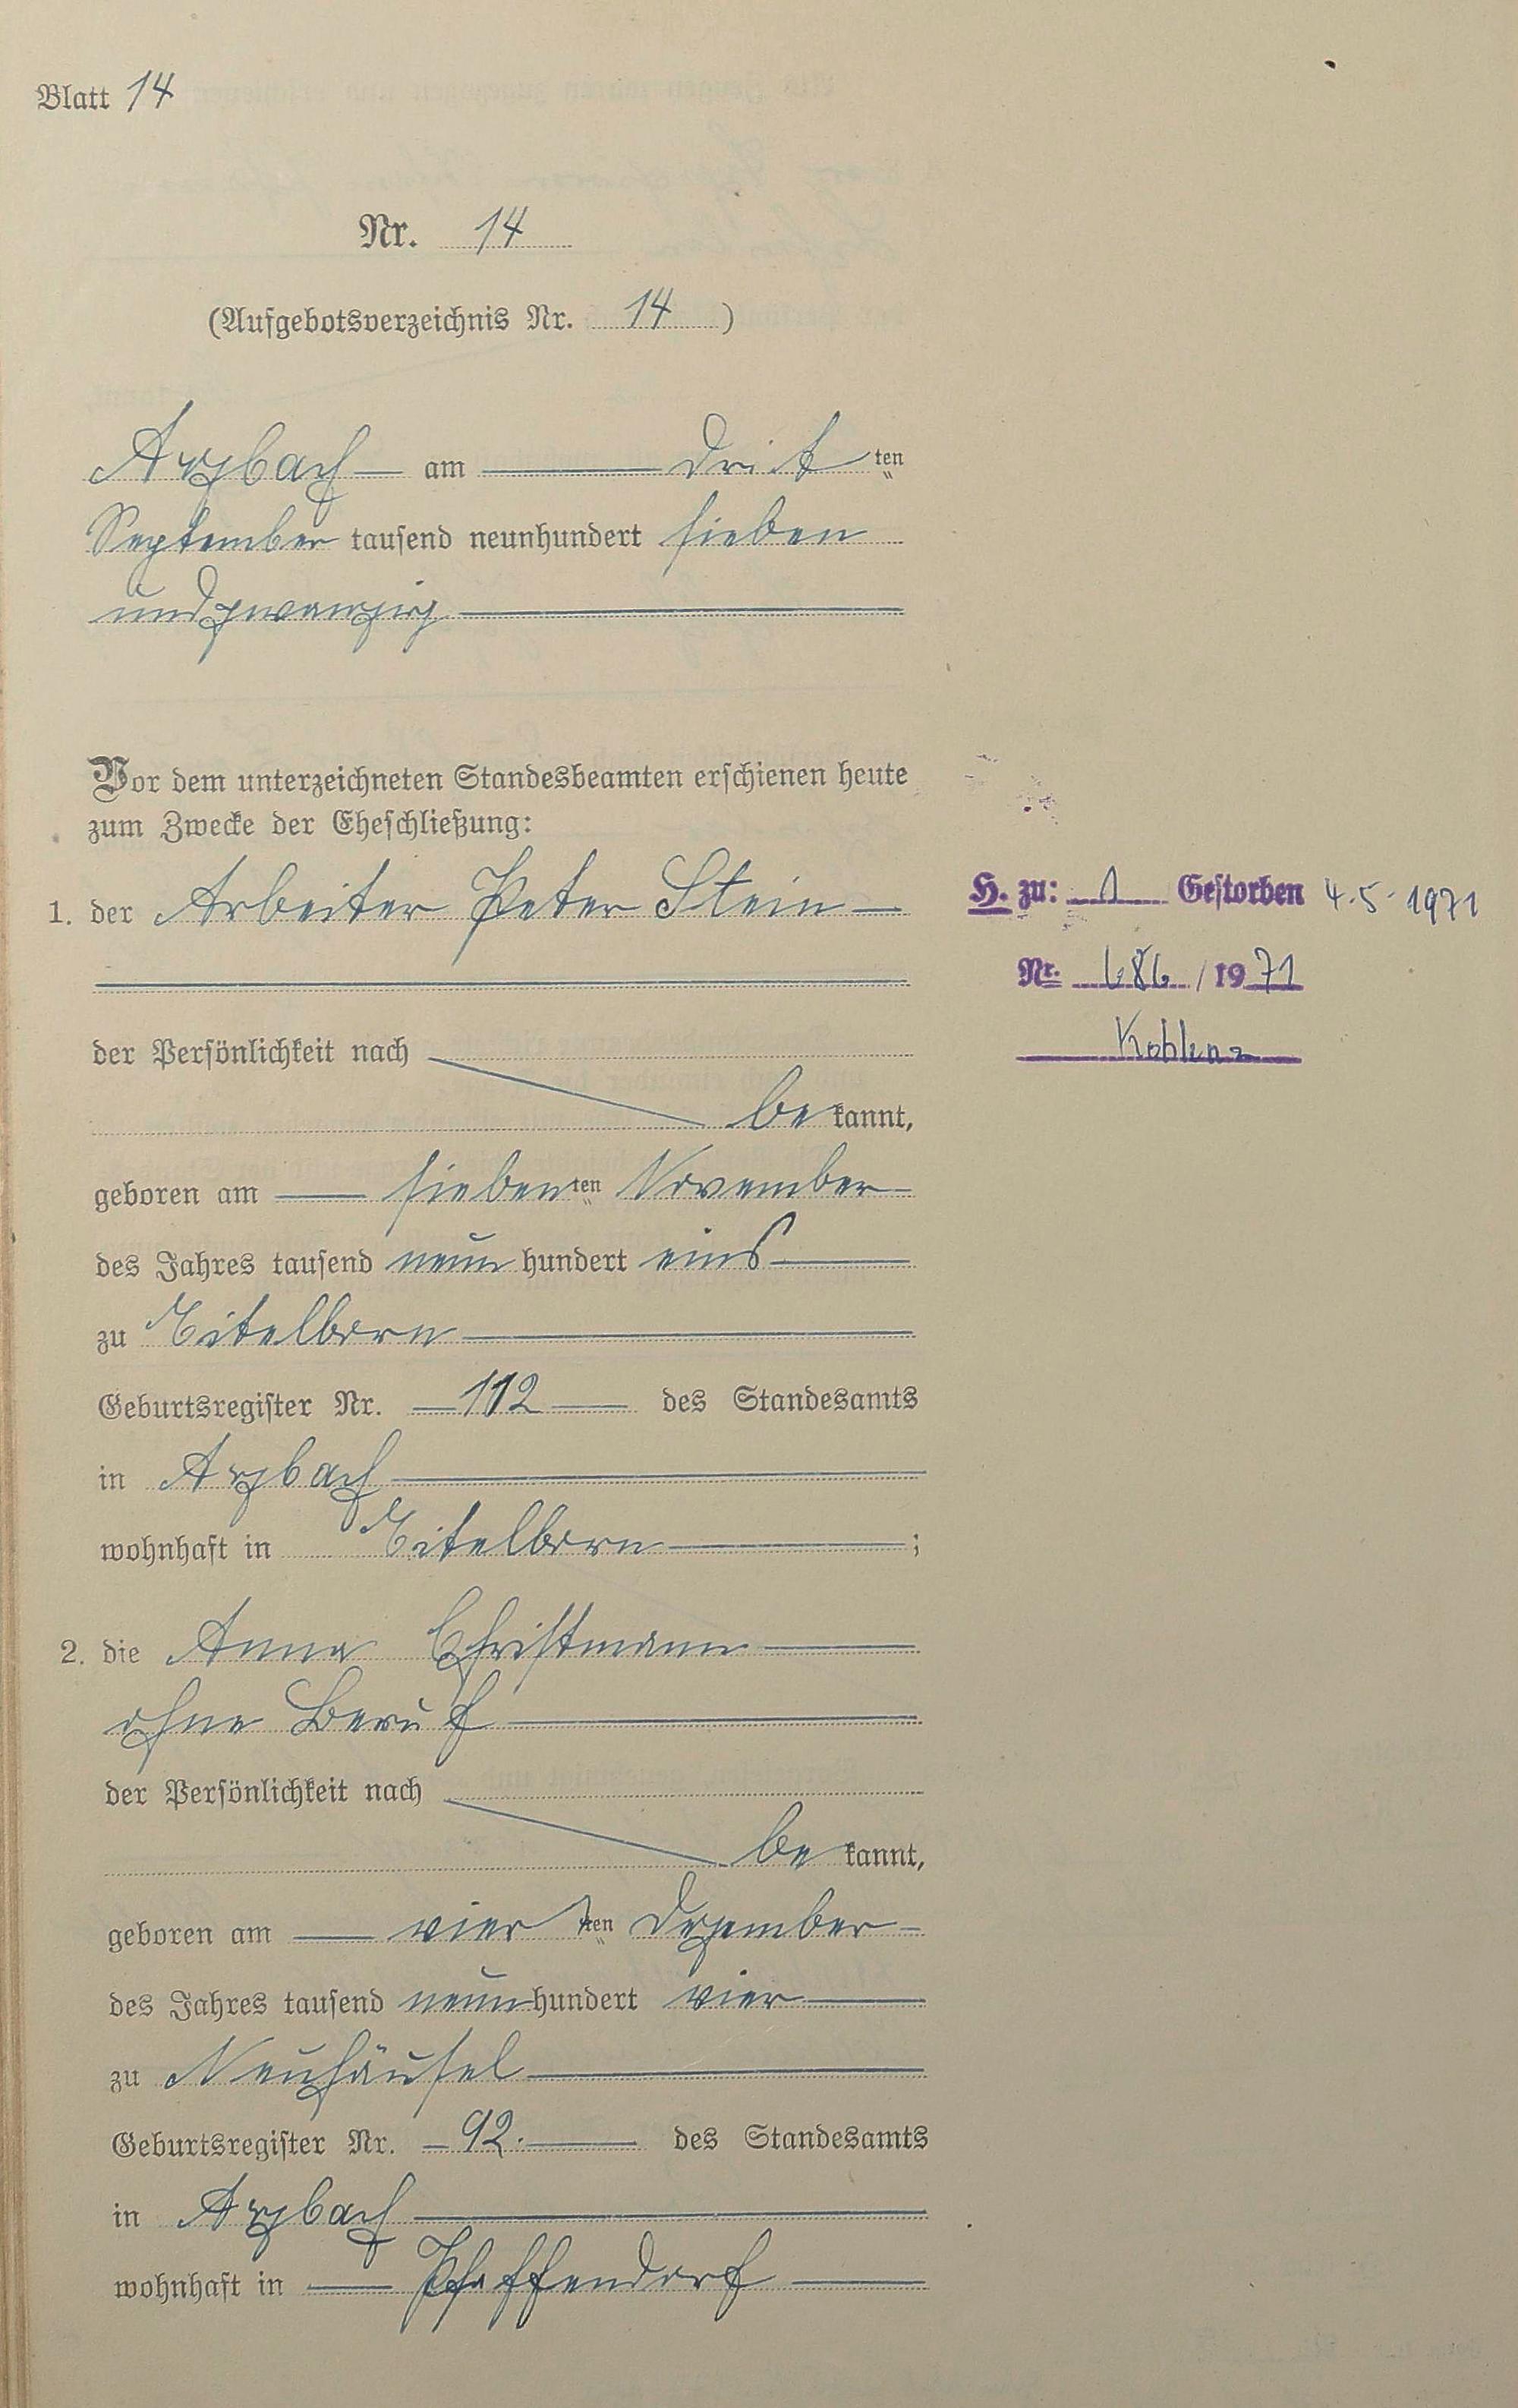 Blatt 14
Nr. 14
(Aufgebotsverzeichnis Nr. 14 )
Arzbach am dritten
September tausend neunhundert sieben
undzwanzig
Vor dem unterzeichneten Standesbeamten erschienen heute
zum Zwecke der Eheschließung:
1. der Arbeiter Peter Stein
H. zu: 1 Gestorben 4.5.1971
Nr. 686 / 1971
Koblenz
der Persönlichkeit nach
be kannt,
geboren am siebenten November
des Jahres tausend neun hundert eins
zu Eitelborn
Geburtsregister Nr. 112 des Standesamts
in Arzbach
wohnhaft in Eitelborn ;
2. die Anna Christmann
ohne Beruf
der Persönlichkeit nach
be kannt,
geboren am vierten Dezember
des Jahres tausend neunhundert vier
zu Neuhäusel
Geburtsregister Nr. 92. des Standesamts
in Arzbach
wohnhaft in Pfaffendorf